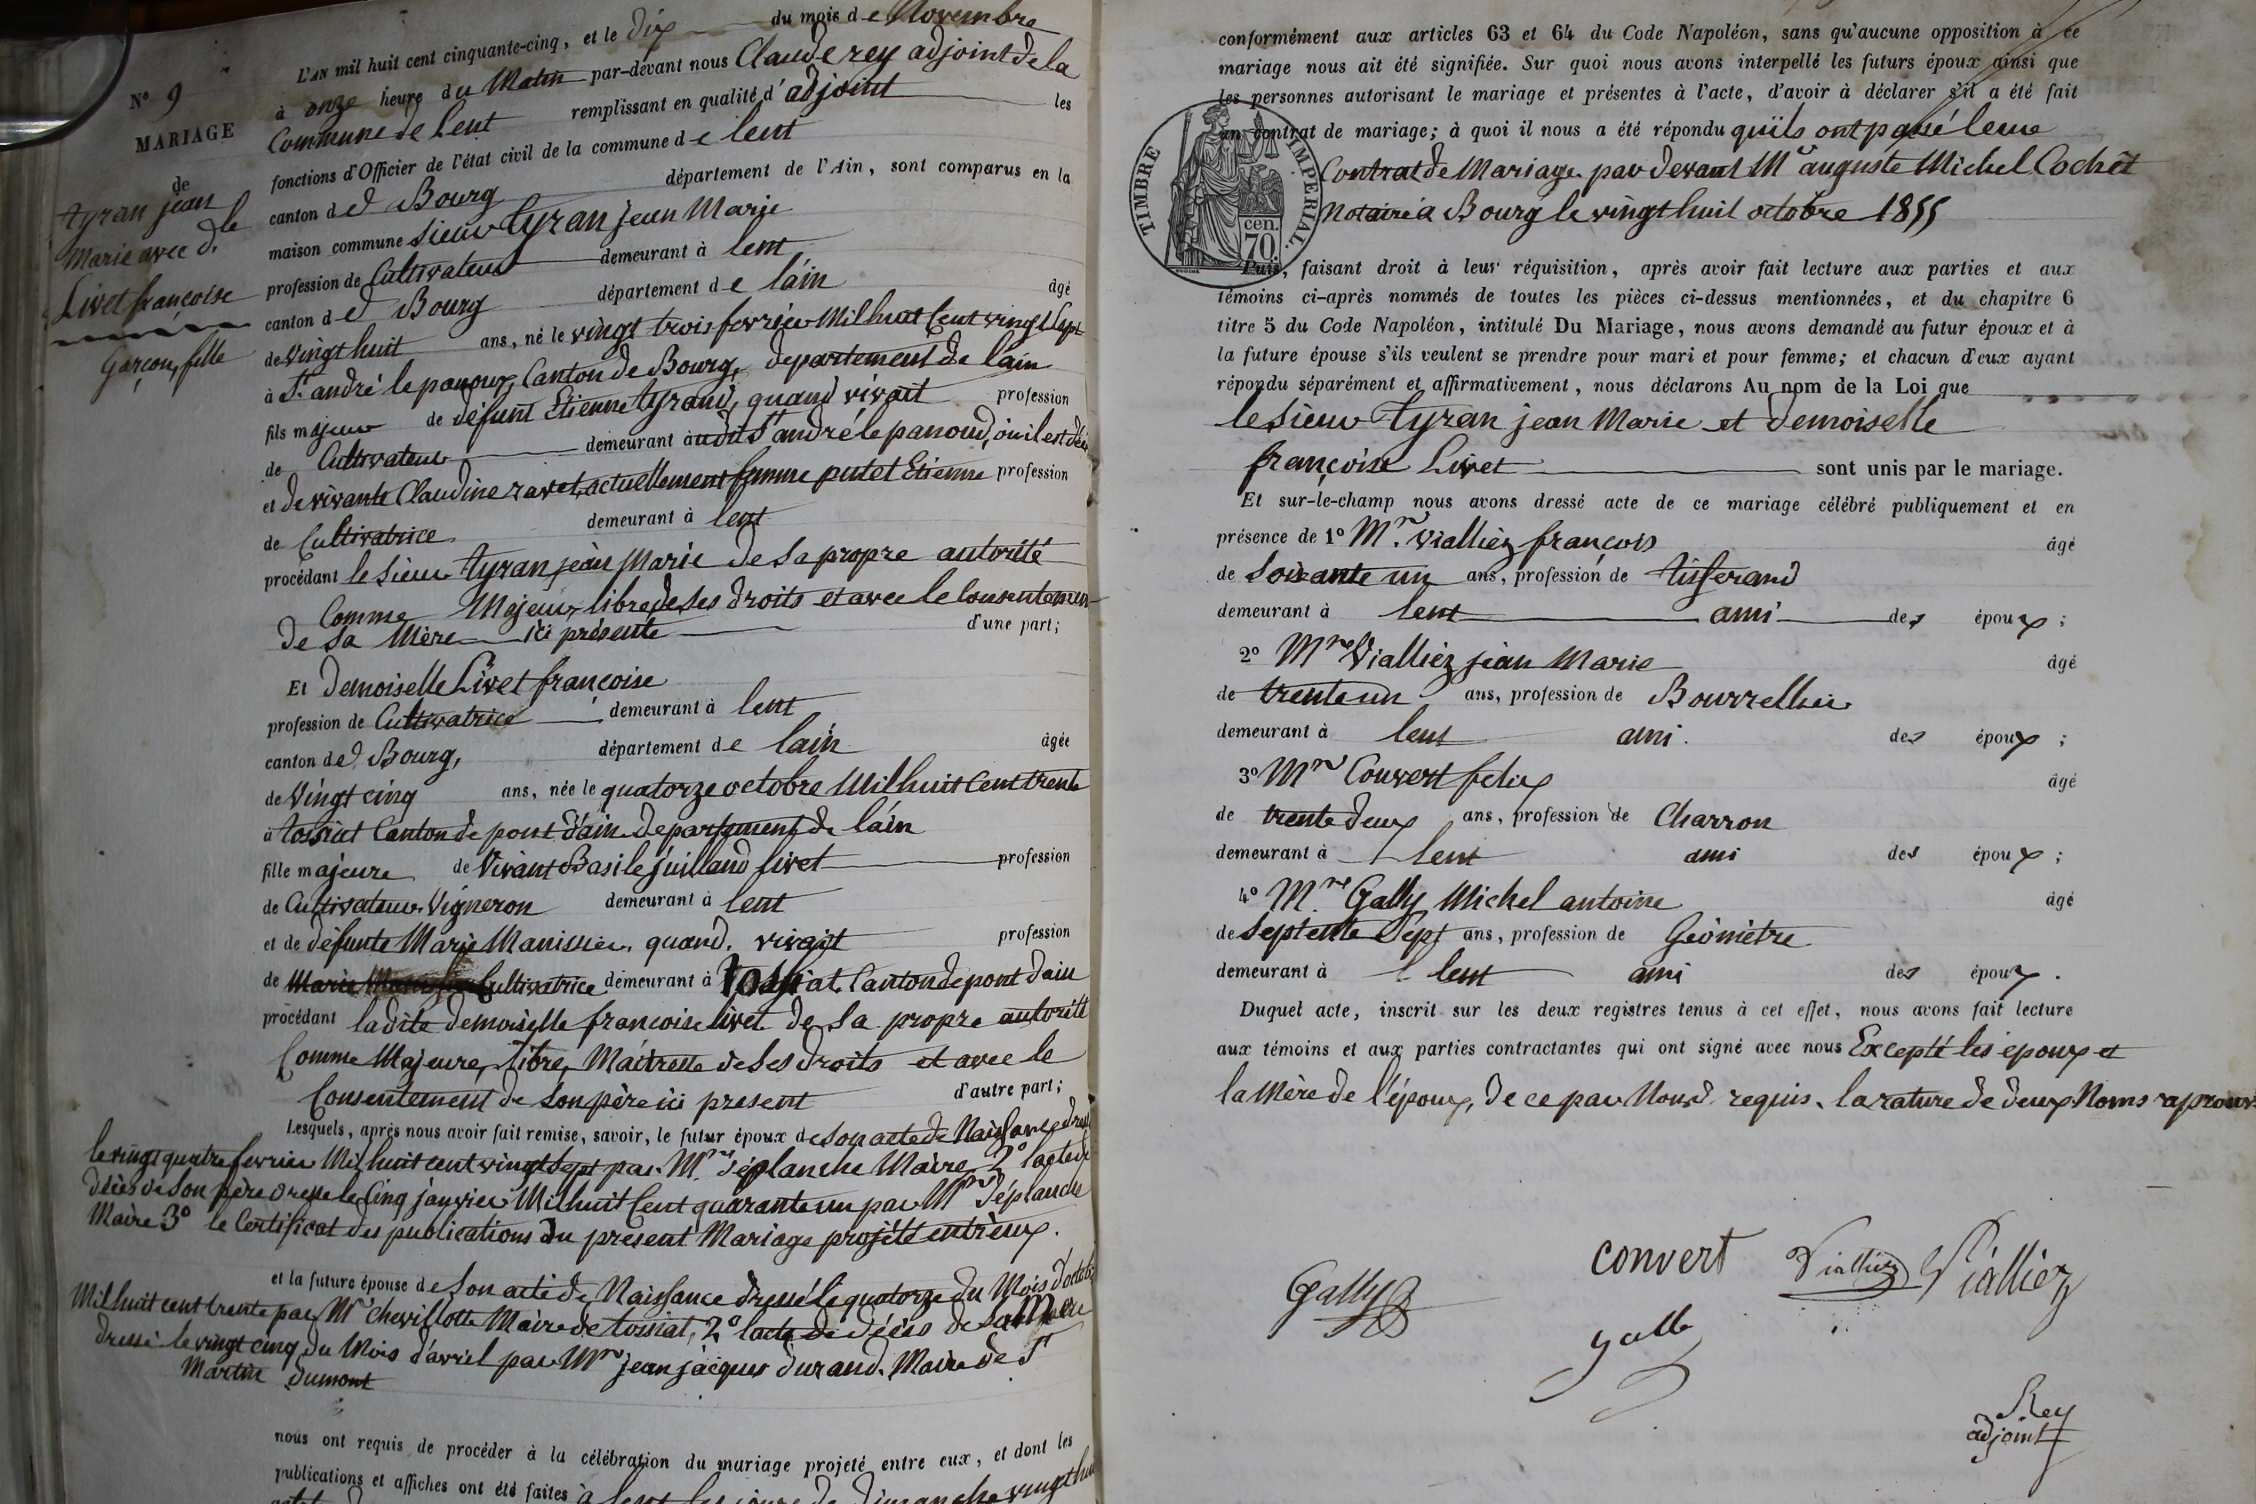 L'AN mil huit cent cinquante-cinq, et le dix du mois de Novembre
à onze heure du Matin par-devant nous Claude rey adjoint de la
Commune de lent remplissant en qualité d'adjoint les
fonctions d'Officier de l'état civil de la commune de lent
canton de Bourg département de l'Ain, sont comparus en la
maison commune sieur tyran jean Marie
profession de Cultivateur demeurant à lent
canton de Bourg département de lain âgé
de Vingt huit ans, né le vingt trois fevrier Mil huit Cent vingt Sept
à St. andré le panoux, Canton de Bourg, departement de lain
fils majeur de défunt Etienne tyrand, quand vivait profession
de Cultivateur demeurant audit St andré le panoud, ou il est décé
et de vivante Claudine ravet, actuellement femme putet Etienne profession
de Cultivatrice demeurant à lent
procédant le sieur tyran jean Marie de sa propre autorité
Comme Majeur, libre de ses droits et avec le Consentemen
de sa Mère ici présente d'une part;
Et Demoiselle Livet françoise
profession de Cultivatrice demeurant à lent
canton de Bourg, département de lain âgée
de Vingt cinq ans, née le quatorze octobre Mil huit Cent trente
à tossiat Canton de pont d'ain departement de lain
fille majeure de Vivant Basile juilland livet profession
de Cultivateur Vigneron demeurant à lent
et de défunte Marie Manissier, quand vivait profession
de Cultivatrice demeurant à tossiat, Canton de pont dain
procédant ladite demoiselle francoise livet de sa propre autorité
Comme Majeure, libre, Maitresse de ses droits et avec le
Consentement de son père ici present d'autre part;
Lesquels, après nous avoir fait remise, savoir, le futur époux de son acte de Naissance dressé
le vingt quatre fevrier Mil huit cent vingt sept par Mr. déplanche Maire 2° lacte de
décès de son père dressé le Cinq janvier Mil huit Cent quarante un par Mr déplanche
Maire 3° le Certificat des publications du présent Mariage projété entr'eux.
et la future épouse de son acte de Naissance dressé le quatorze du Mois d'octob
Mil huit cent trente par Mr chevillotte Maire de tossiat, 2° lacte de décès de sa Mère
dressé le vingt cinq du Mois d'avril par Mr jean jacques durand. Maire de St
Martin dumont
nous ont requis de procéder à la célébration du mariage projeté entre eux, et dont les
publications et affiches ont été faites à lent les jours de dimanche vingt hui
N° 9
MARIAGE
de
tyran jean
Marie avec dlle
Livet françoise
Garçon, fille
conformément aux articles 63 et 64 du Code Napoléon, sans qu'aucune opposition à ce
mariage nous ait été signifiée. Sur quoi nous avons interpellé les futurs époux ainsi que
les personnes autorisant le mariage et présentes à l'acte, d'avoir à déclarer s'il a été fait
un contrat de mariage; à quoi il nous a été répondu quils ont passé leur
Contrat de Mariage par devant Me auguste Michel Cochet
Notaire à Bourg le vingt huit octobre 1855
TIMBRE IMPERIAL.
cen.
70.
Puis, faisant droit à leur réquisition, après avoir fait lecture aux parties et aux
témoins ci-après nommés de toutes les pièces ci-dessus mentionnées, et du chapitre 6
titre 5 du Code Napoléon, intitulé Du Mariage, nous avons demandé au futur époux et à
la future épouse s'ils veulent se prendre pour mari et pour femme; et chacun d'eux ayant
répondu séparément et affirmativement, nous déclarons Au nom de la Loi que
le sieur tyran jean Marie et demoiselle
françoise Livet sont unis par le mariage.
Et sur-le-champ nous avons dressé acte de ce mariage célébré publiquement et en
présence de 1° Mr. Vialliez françois âgé
de Soixante un ans, profession de tisserand
demeurant à lent ami des époux;
2° Mr Vialliez jean Marie âgé
de trente un ans, profession de Bourrellier
demeurant à lent ami des époux;
3° Mr Convert felix âgé
de trente deux ans, profession de Charron
demeurant à lent ami des époux;
4° Mr Gally Michel antoine âgé
de Septente Sept ans, profession de Géomètre
demeurant à lent ami des époux.
Duquel acte, inscrit sur les deux registres tenus à cet effet, nous avons fait lecture
aux témoins et aux parties contractantes qui ont signé avec nous Excepté les époux et
la Mère de l'époux, de ce par Nous requis. la rature de deux Noms approuv
convert Vialliez Vialliez
Gally
Rey
adjoint